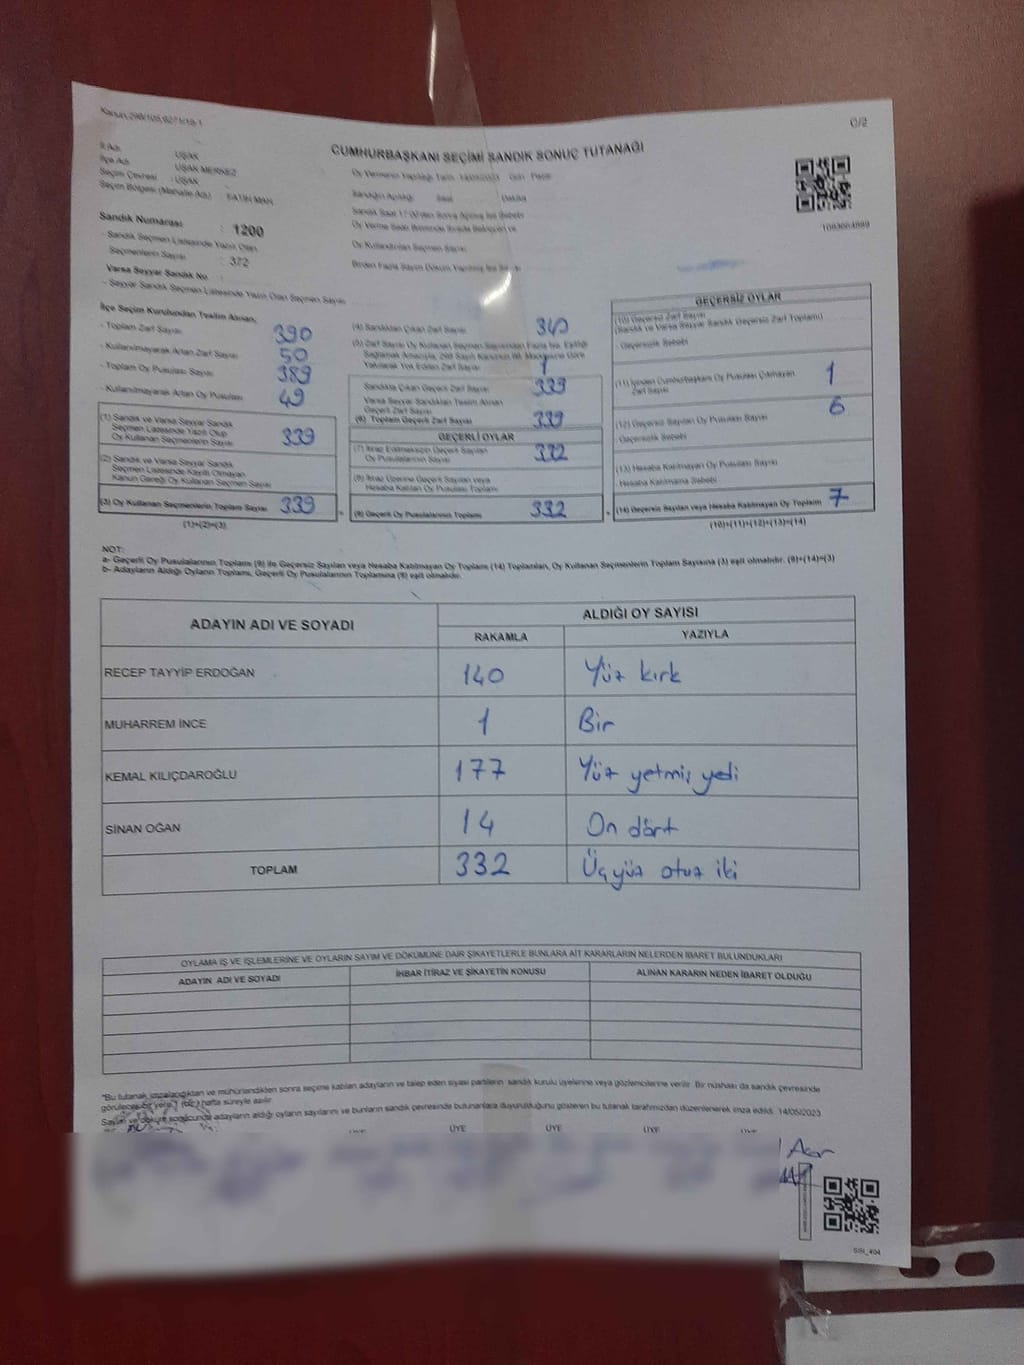 Kanun:298/105,6271/19-1
C/2
CUMHURBAŞKANI SEÇİMİ SANDIK SONUÇ TUTANAĞI
İl Adı : UŞAK
İlçe Adı : UŞAK MERKEZ
Seçim Çevresi : UŞAK
Seçim Bölgesi (Mahalle Adı) : FATİH MAH.
Oy Vermenin Yapıldığı Tarih 14/05/2023 Gün Pazar
Sandığın Açıldığı Saat Dakika
Sandık Numarası : 1200
- Sandık Seçmen Listesinde Yazılı Olan
Seçmenlerin Sayısı : 372
Varsa Seyyar Sandık No
- Seyyar Sandık Seçmen Listesinde Yazılı Olan Seçmen Sayısı
Oy Kullandırılan Seçmen Sayısı
İlçe Seçim Kurulundan Teslim Alınan;
- Toplam Zarf Sayısı 390
- Kullanılmayarak Artan Zarf Sayısı 50
- Toplam Oy Pusulası Sayısı 389
- Kullanılmayarak Artan Oy Pusulası 49
(1) Sandık ve Varsa Seyyar Sandık
Seçmen Listesinde Yazılı Olup
Oy Kullanan Seçmenlerin Sayısı 339
(2) Sandık ve Varsa Seyyar Sandık
Seçmen Listesinde Kayıtlı Olmayan
Kanun Gereği Oy Kullanan Seçmen Sayısı
(3) Oy Kullanan Seçmenlerin Toplam Sayısı 339
(1)+(2)=(3)
(4) Sandıktan Çıkan Zarf Sayısı 340
(5) Zarf Sayısı Oy Kullanan Seçmen Sayısından Fazla ise, Eşitliği
Sağlamak Amacıyla, 298 Sayılı Kanunun 98. Maddesine Göre
Yakılarak Yok Edilen Zarf Sayısı 1
Sandıkta Çıkan Geçerli Zarf Sayısı 339
Varsa Seyyar Sandıktan Teslim Alınan
Geçerli Zarf Sayısı
(6) Toplam Geçerli Zarf Sayısı 339
GEÇERLİ OYLAR
(7) İtiraz Edilmeksizin Geçerli Sayılan
Oy Pusulalarının Sayısı 332
(8) İtiraz Üzerine Geçerli Sayılan veya
Hesaba Katılan Oy Pusulası Toplamı
(9) Geçerli Oy Pusulalarının Toplamı 332
GEÇERSİZ OYLAR
(10) Geçersiz Zarf Sayısı
(Sandık ve Varsa Seyyar Sandık Geçersiz Zarf Toplamı)
- Geçersizlik Sebebi
(11) İçinden Cumhurbaşkanı Oy Pusulası Çıkmayan
Zarf Sayısı 1
(12) Geçersiz Sayılan Oy Pusulası Sayısı 6
- Geçersizlik Sebebi
(13) Hesaba Katılmayan Oy Pusulası Sayısı
- Hesaba Katılmama Sebebi
(14) Geçersiz Sayılan veya Hesaba Katılmayan Oy Toplamı 7
(10)+(11)+(12)+(13)=(14)
NOT:
a- Geçerli Oy Pusulalarının Toplamı (9) ile Geçersiz Sayılan veya Hesaba Katılmayan Oy Toplamı (14) Toplamları, Oy Kullanan Seçmenlerin Toplam Sayısına (3) eşit olmalıdır. (9)+(14)=(3)
b- Adayların Aldığı Oyların Toplamı, Geçerli Oy Pusulalarının Toplamına (9) eşit olmalıdır.
ADAYIN ADI VE SOYADI
ALDIĞI OY SAYISI
RAKAMLA YAZIYLA
RECEP TAYYİP ERDOĞAN 140 Yüz kırk
MUHARREM İNCE 1 Bir
KEMAL KILIÇDAROĞLU 177 Yüz yetmiş yedi
SİNAN OĞAN 14 On dört
TOPLAM 332 Üçyüz otuz iki
OYLAMA İŞ VE İŞLEMLERİNE VE OYLARIN SAYIM VE DÖKÜMÜNE DAİR ŞİKAYETLERLE BUNLARA AİT KARARLARIN NELERDEN İBARET BULUNDUKLARI
ADAYIN ADI VE SOYADI İHBAR İTİRAZ VE ŞİKAYETİN KONUSU ALINAN KARARIN NEDEN İBARET OLDUĞU
"Bu tutanak imzalandıktan ve mühürlendikten sonra seçime katılan adayların ve talep eden siyasi partilerin sandık kurulu üyelerine veya gözlemcilerine verilir. Bir nüshası da sandık çevresinde
görülecek bir yere 1 (bir) hafta süreyle asılır.
Sayım ve döküm sonucunda adayların aldığı oyların sayılarını ve bunların sandık çevresinde bulunanlara duyurulduğunu gösteren bu tutanak tarafımızdan düzenlenerek imza edildi. 14/05/2023
ÜYE ÜYE ÜYE ÜYE
Acar
SSL_404